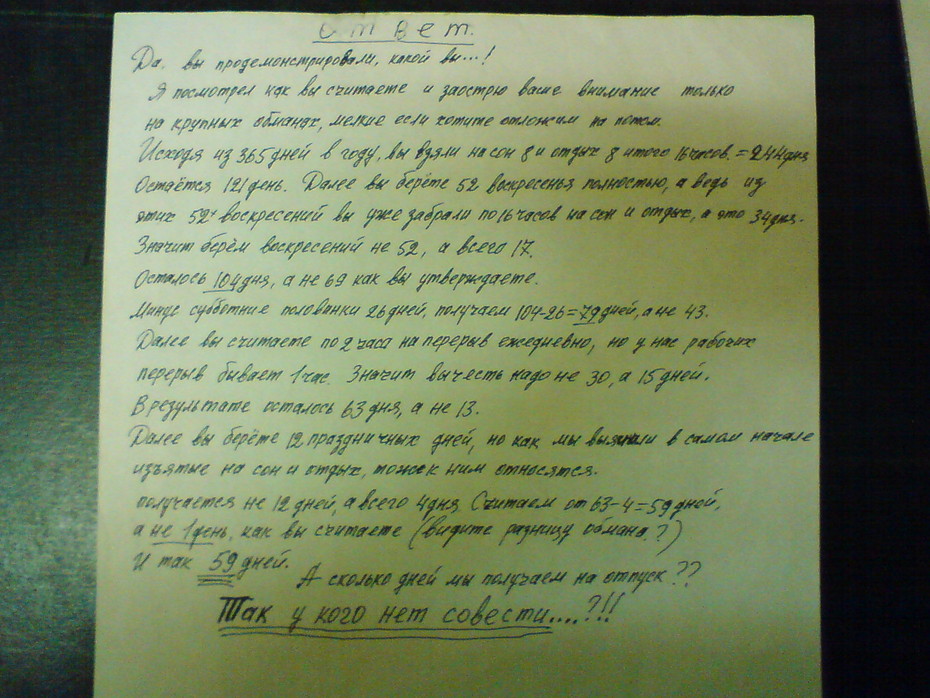 Ответ.
Да, вы продемонстрировали, какой вы...!
Я посмотрел как вы считаете и заострю ваше внимание только
на крупных обманах, мелкие если хотите отложим на потом.
Исходя из 365 дней в году, вы взяли на сон 8 и отдых 8 итого 16 часов. = 244 дня
Остаётся 121 день. Далее вы берёте 52 воскресенья полностью, а ведь из
этих 52х воскресений вы уже забрали по 16 часов на сон и отдых, а это 34 дня.
Значит берём воскресений не 52, а всего 17.
Осталось 104 дня, а не 69 как вы утверждаете.
Минус субботние половинки 26 дней, получаем 104-26=79 дней, а не 43.
Далее вы считаете по 2 часа на перерыв ежедневно, но у нас рабочих
перерыв бывает 1 час. Значит вычесть надо не 30, а 15 дней.
В результате осталось 63 дня, а не 13.
Далее вы берёте 12 праздничных дней, но как мы выяснили в самом начале
изъятые на сон и отдых, тоже к ним относятся.
получается не 12 дней, а всего 4 дня. Считаем от 63-4=59 дней,
а не 1 день, как вы считаете (видите разницу обмана?)
И так 59 дней.
А сколько дней мы получаем на отпуск??
Так у кого нет совести....?!!